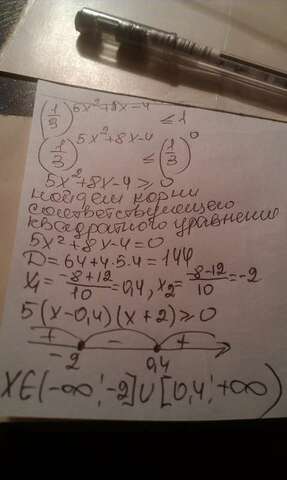 (1/3)^(5x²+8x-4) ≤ 1
(1/3)^(5x²+8x-4) ≤ (1/3)^0
5x²+8x-4 ≥ 0
найдем корни
соответствующего
квадратного уравнение
5x²+8x-4=0
D=64+4·5·4=144
x₁=(-8+12)/10=0,4, x₂=(-8-12)/10=-2
5(x-0,4)(x+2)≥0
+ - +
-2 0,4
X∈(-∞;-2]∪[0,4;+∞)